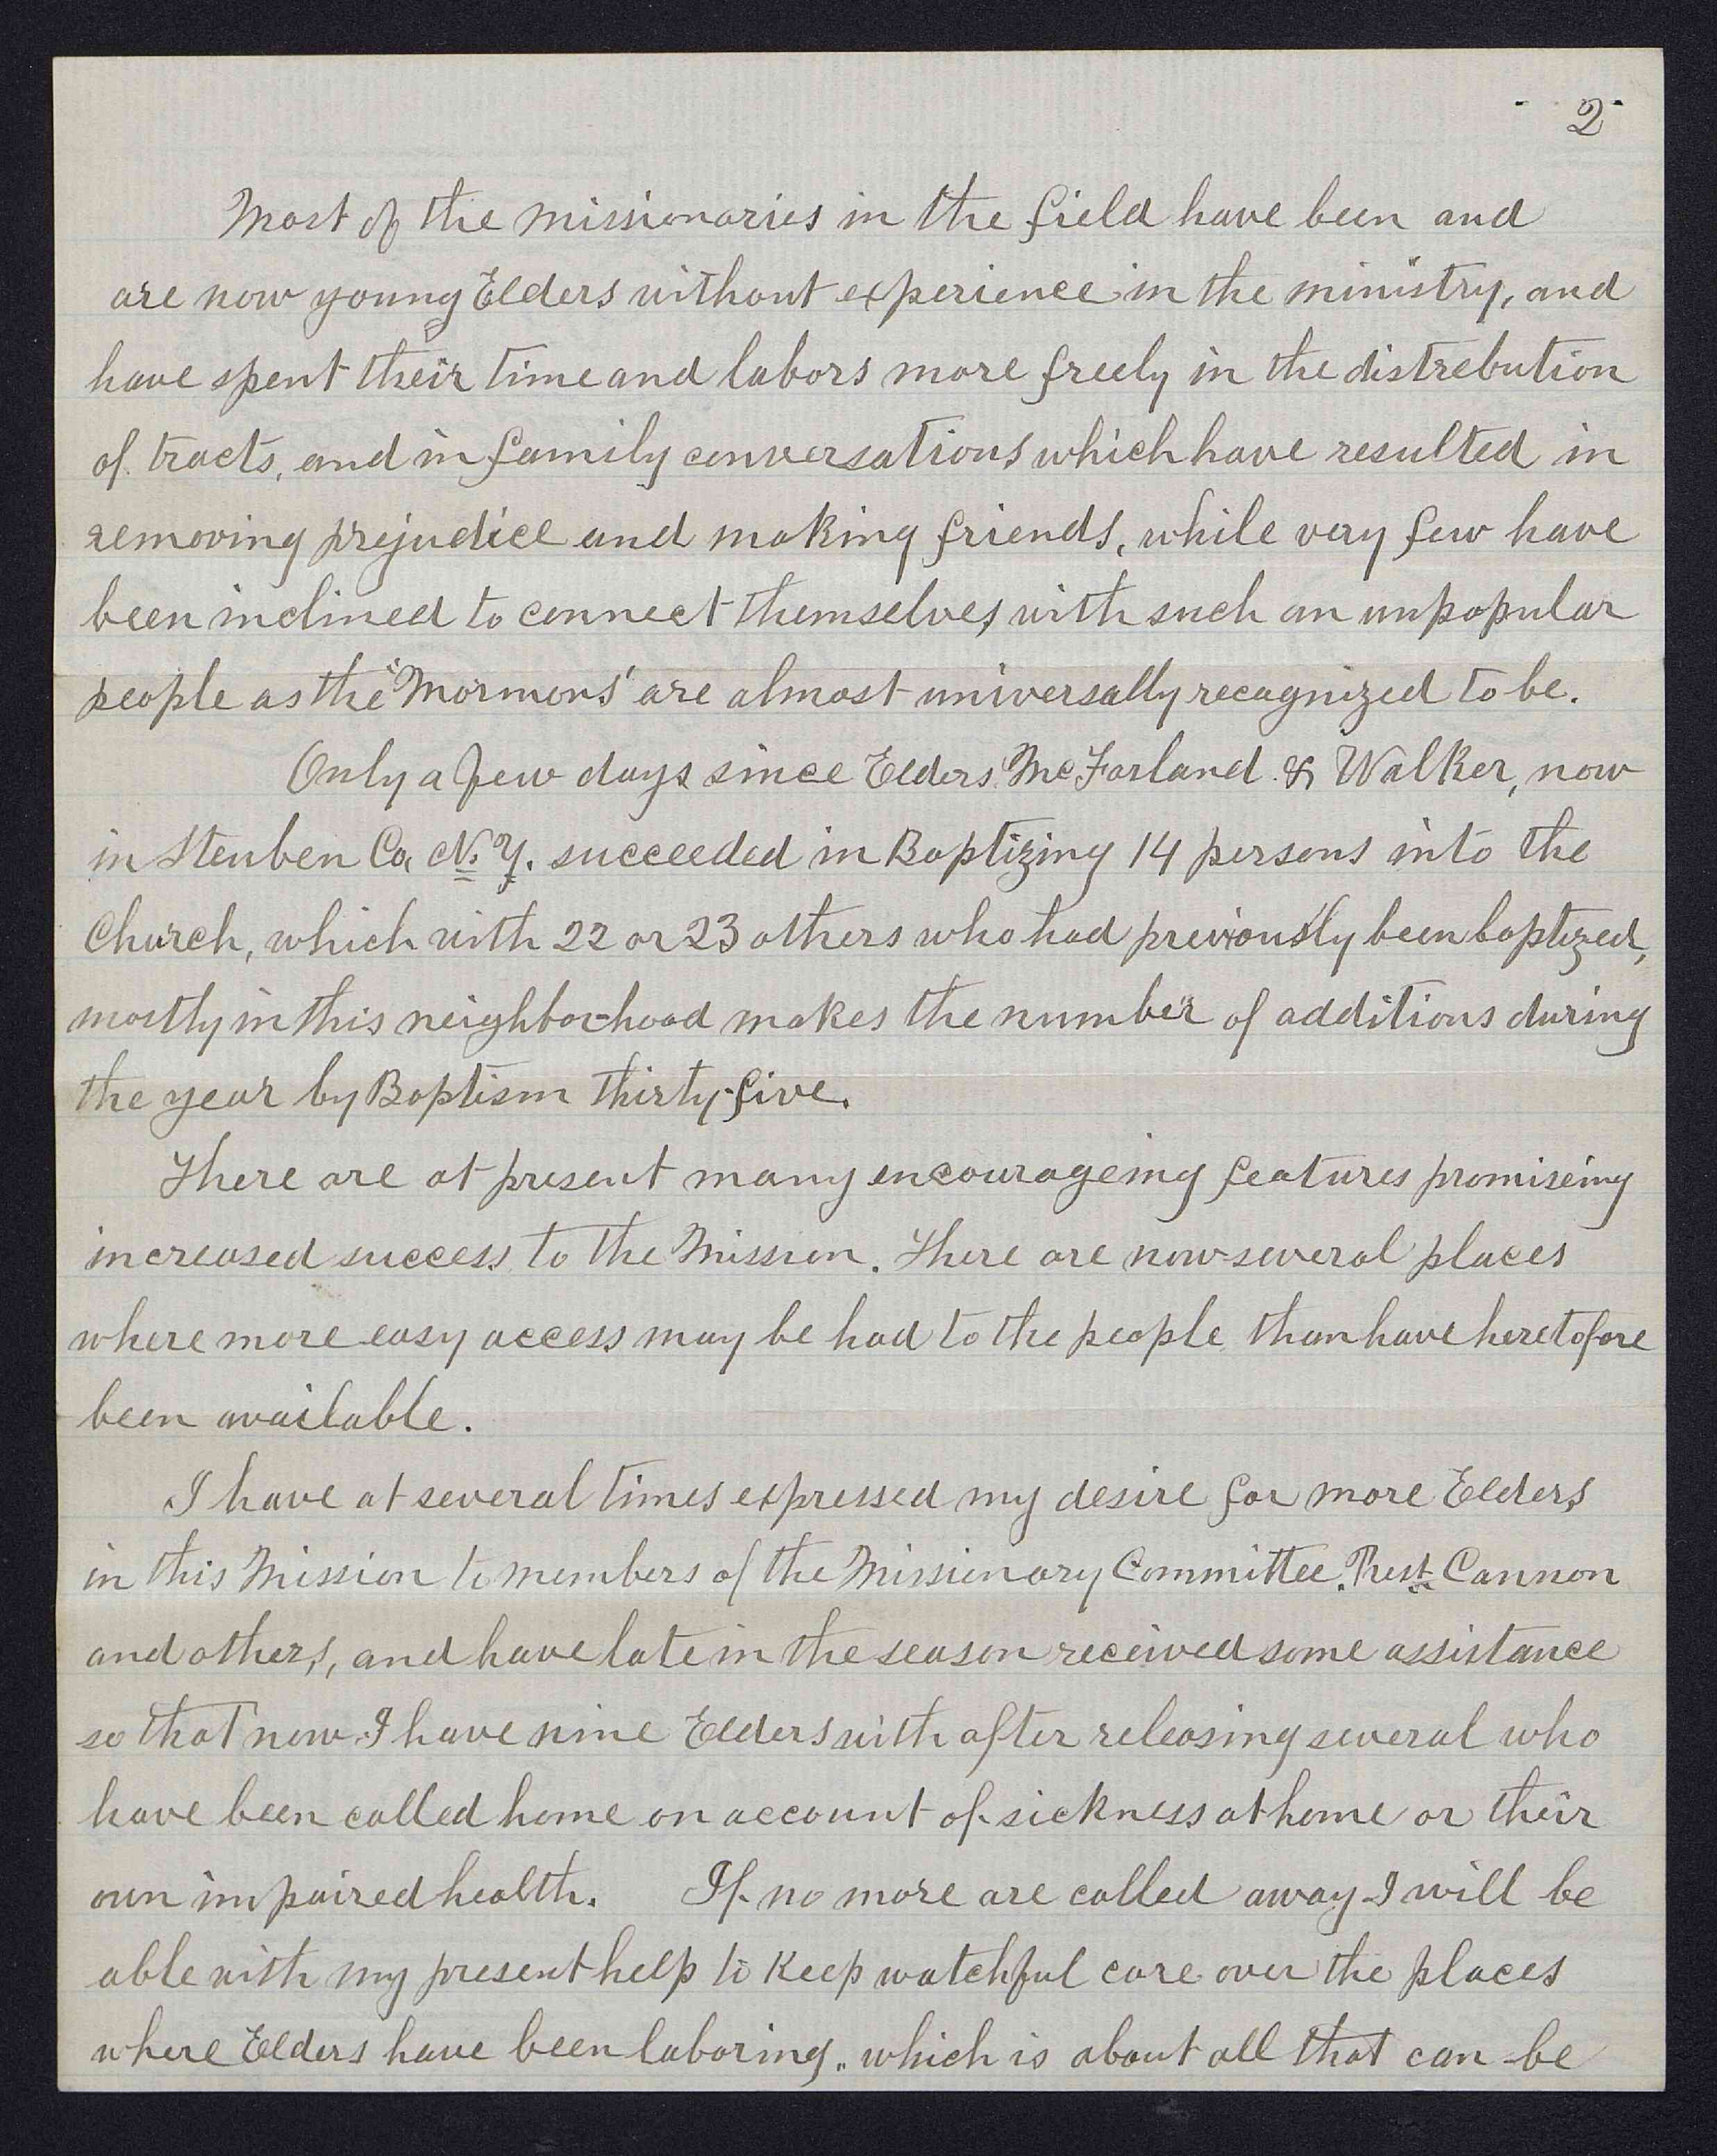 2
Most of the missionaries in the field have been and
are now young Elders without experience in the ministry, and
have spent their time and labors more freely in the distrebution
of tracts, and in family conversations which have resulted in
removing prejudice and making friends, while very few have
been inclined to connect themselves with such an unpopular
people as the "Mormons" are almost universally recognized to be.
Only a few days since Elders McFarland & Walker, now
in Steuben Co, N.Y. succeeded in Baptizing 14 persons into the
Church, which with 22 or 23 others who had previously been baptized,
mostly in this neighbor-hood makes the number of additions during
the year by Baptism thirty-five.
There are at present many encourageing features promiseing
increased success to the Mission. There are now several places
where more easy access may be had to the people than have heretofore
been available.
I have at several times expressed my desire for more Elders
in this Mission to members of the Missionary Committee. Prest. Cannon
and others, and have late in the season received some assistance
so that now I have nine Elders with after releasing several who
have been called home on account of sickness at home or their
own impaired health. If no more are called away I will be
able with my present help to keep watchful care over the places
where Elders have been laboring, which is about all that can be